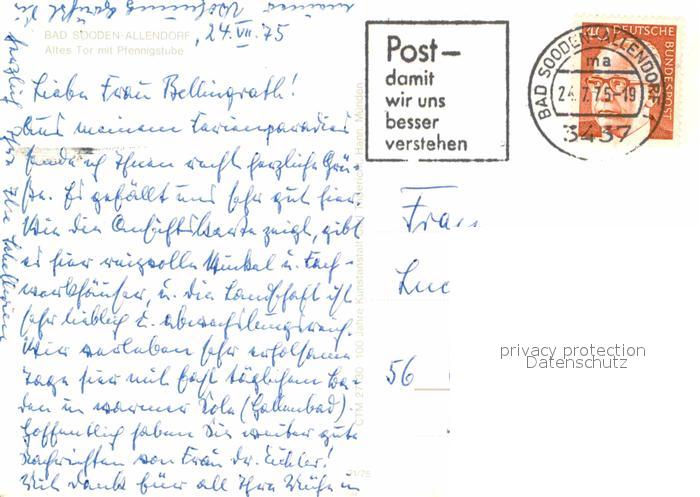 BAD SOODEN-ALLENDORF
Altes Tor mit Pfennigstube
, 24.VII.75
Liebe Frau Bellingrath!
Aus meinem Ferienparadies
sende ich Ihnen recht herzliche Grü-
ße. Es gefällt uns sehr gut hier.
Wie die Ansichtskarte zeigt, gibt
es hier reizvolle Winkel u. Fach-
werkhäuser, u. die Landschaft ist
sehr lieblich u. abwechslungsreich.
Wir verleben sehr erholsame
Tage hier mit fast täglichem Ba-
den in warmer Sole (Hallenbad).
Hoffentlich haben Sie weiter gute
Nachrichten von Frau Dr. Eichler!
Viel Dank für all Ihre Mühe in
meiner Wohnung
herzlich Ihre
100 Jahre Kunstanstalt Hann. Münden
Post—
damit
wir uns
besser
verstehen
BAD SOODEN-ALLENDORF 1
ma
24.7.75-19
3437
40 DEUTSCHE
BUNDESPOST
Frau
Luc
56
privacy protection
Datenschutz